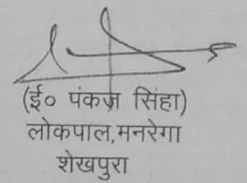 (ई० पंकज सिंहा)
लोकपाल,मनरेगा
शेखपुरा